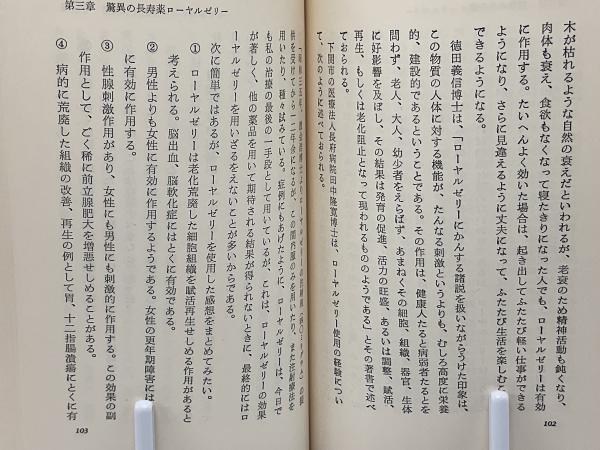 木が枯れるような自然の衰えだといわれるが、老衰のため精神活動も鈍くなり、
肉体も衰え、食欲もなくなって寝たきりになった人でも、ローヤルゼリーは有効
に作用する。たいへんよく効いた場合は、起き出してふたたび軽い仕事ができる
ようになり、さらに見違えるように丈夫になって、ふたたび生活を楽しむこ
できるようになる。
徳田義信博士は、「ローヤルゼリーにかんする諸説を扱いながらうけた印象は、
この物質の人体に対する機能が、たんなる刺激というよりも、むしろ高度に栄養
的、建設的であるということである。その作用は、健康人たると病弱者たるとを
問わず、老人、大人、幼少者をえらばず、あまねくその細胞、組織、器官、生体
に好影響を及ぼし、その結果は発育の促進、活力の旺盛、あるいは調整、賦活、
再生、もしくは老化阻止となって現われるもののようである」とその著書で述べ
ておられる。
下関市の医療法人長府病院田中隆寛博士は、ローヤルゼリー使用の経験につい
て、次のように述べておられる。
102
第三章 驚異の長寿薬ローヤルゼリー
供を受けてから一二年余になるが、この間内服のみを用いたり、また注射療法を
用いたり、種々試みている。症例にもあげたように、ローヤルゼリーは、今日で
も私の治療の最後の一手段として用いているが、これは、ローヤルゼリーの効果
が著しく、他の薬品を用いて期待される結果が得られないときに、最終的にはロ
ーヤルゼリーを用いざるをえないことが多いからである。
次に簡単ではあるが、ローヤルゼリーを使用した感想をまとめてみたい。
① ローヤルゼリーは老化荒廃した細胞組織を賦活再生せしめる作用があると
考えられる。脳出血、脳軟化症にはとくに有効である。
② 男性よりも女性に有効に作用するようである。女性の更年期障害には
に有効に作用する。
③ 性腺刺激作用があり、女性にも男性にも刺激的に作用する。この効果の副
作用として、ごく稀に前立腺肥大を増悪せしめることがある。
④ 病的に荒廃した組織の改善、再生の例として胃、十二指腸潰瘍にとくに有
103